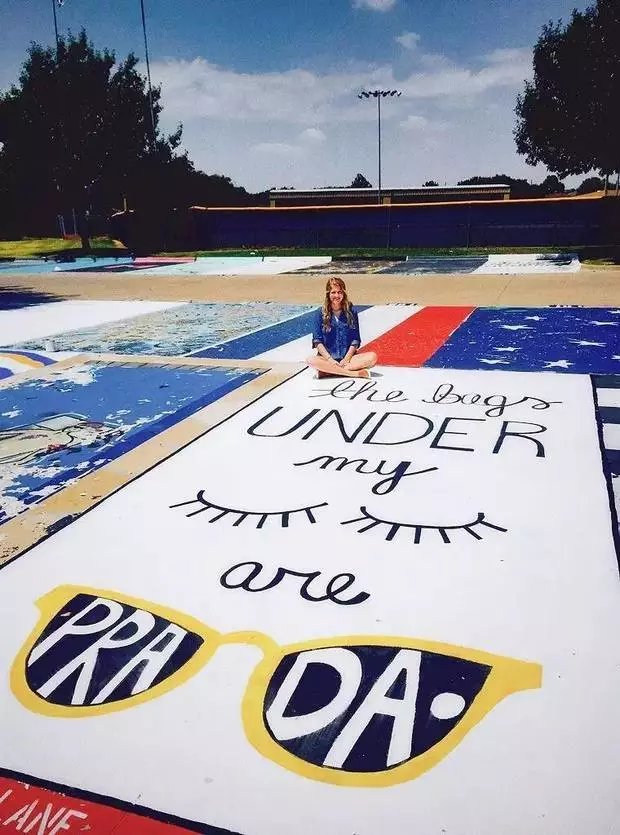 the bags
UNDER
my
are
PRADA.
LANE